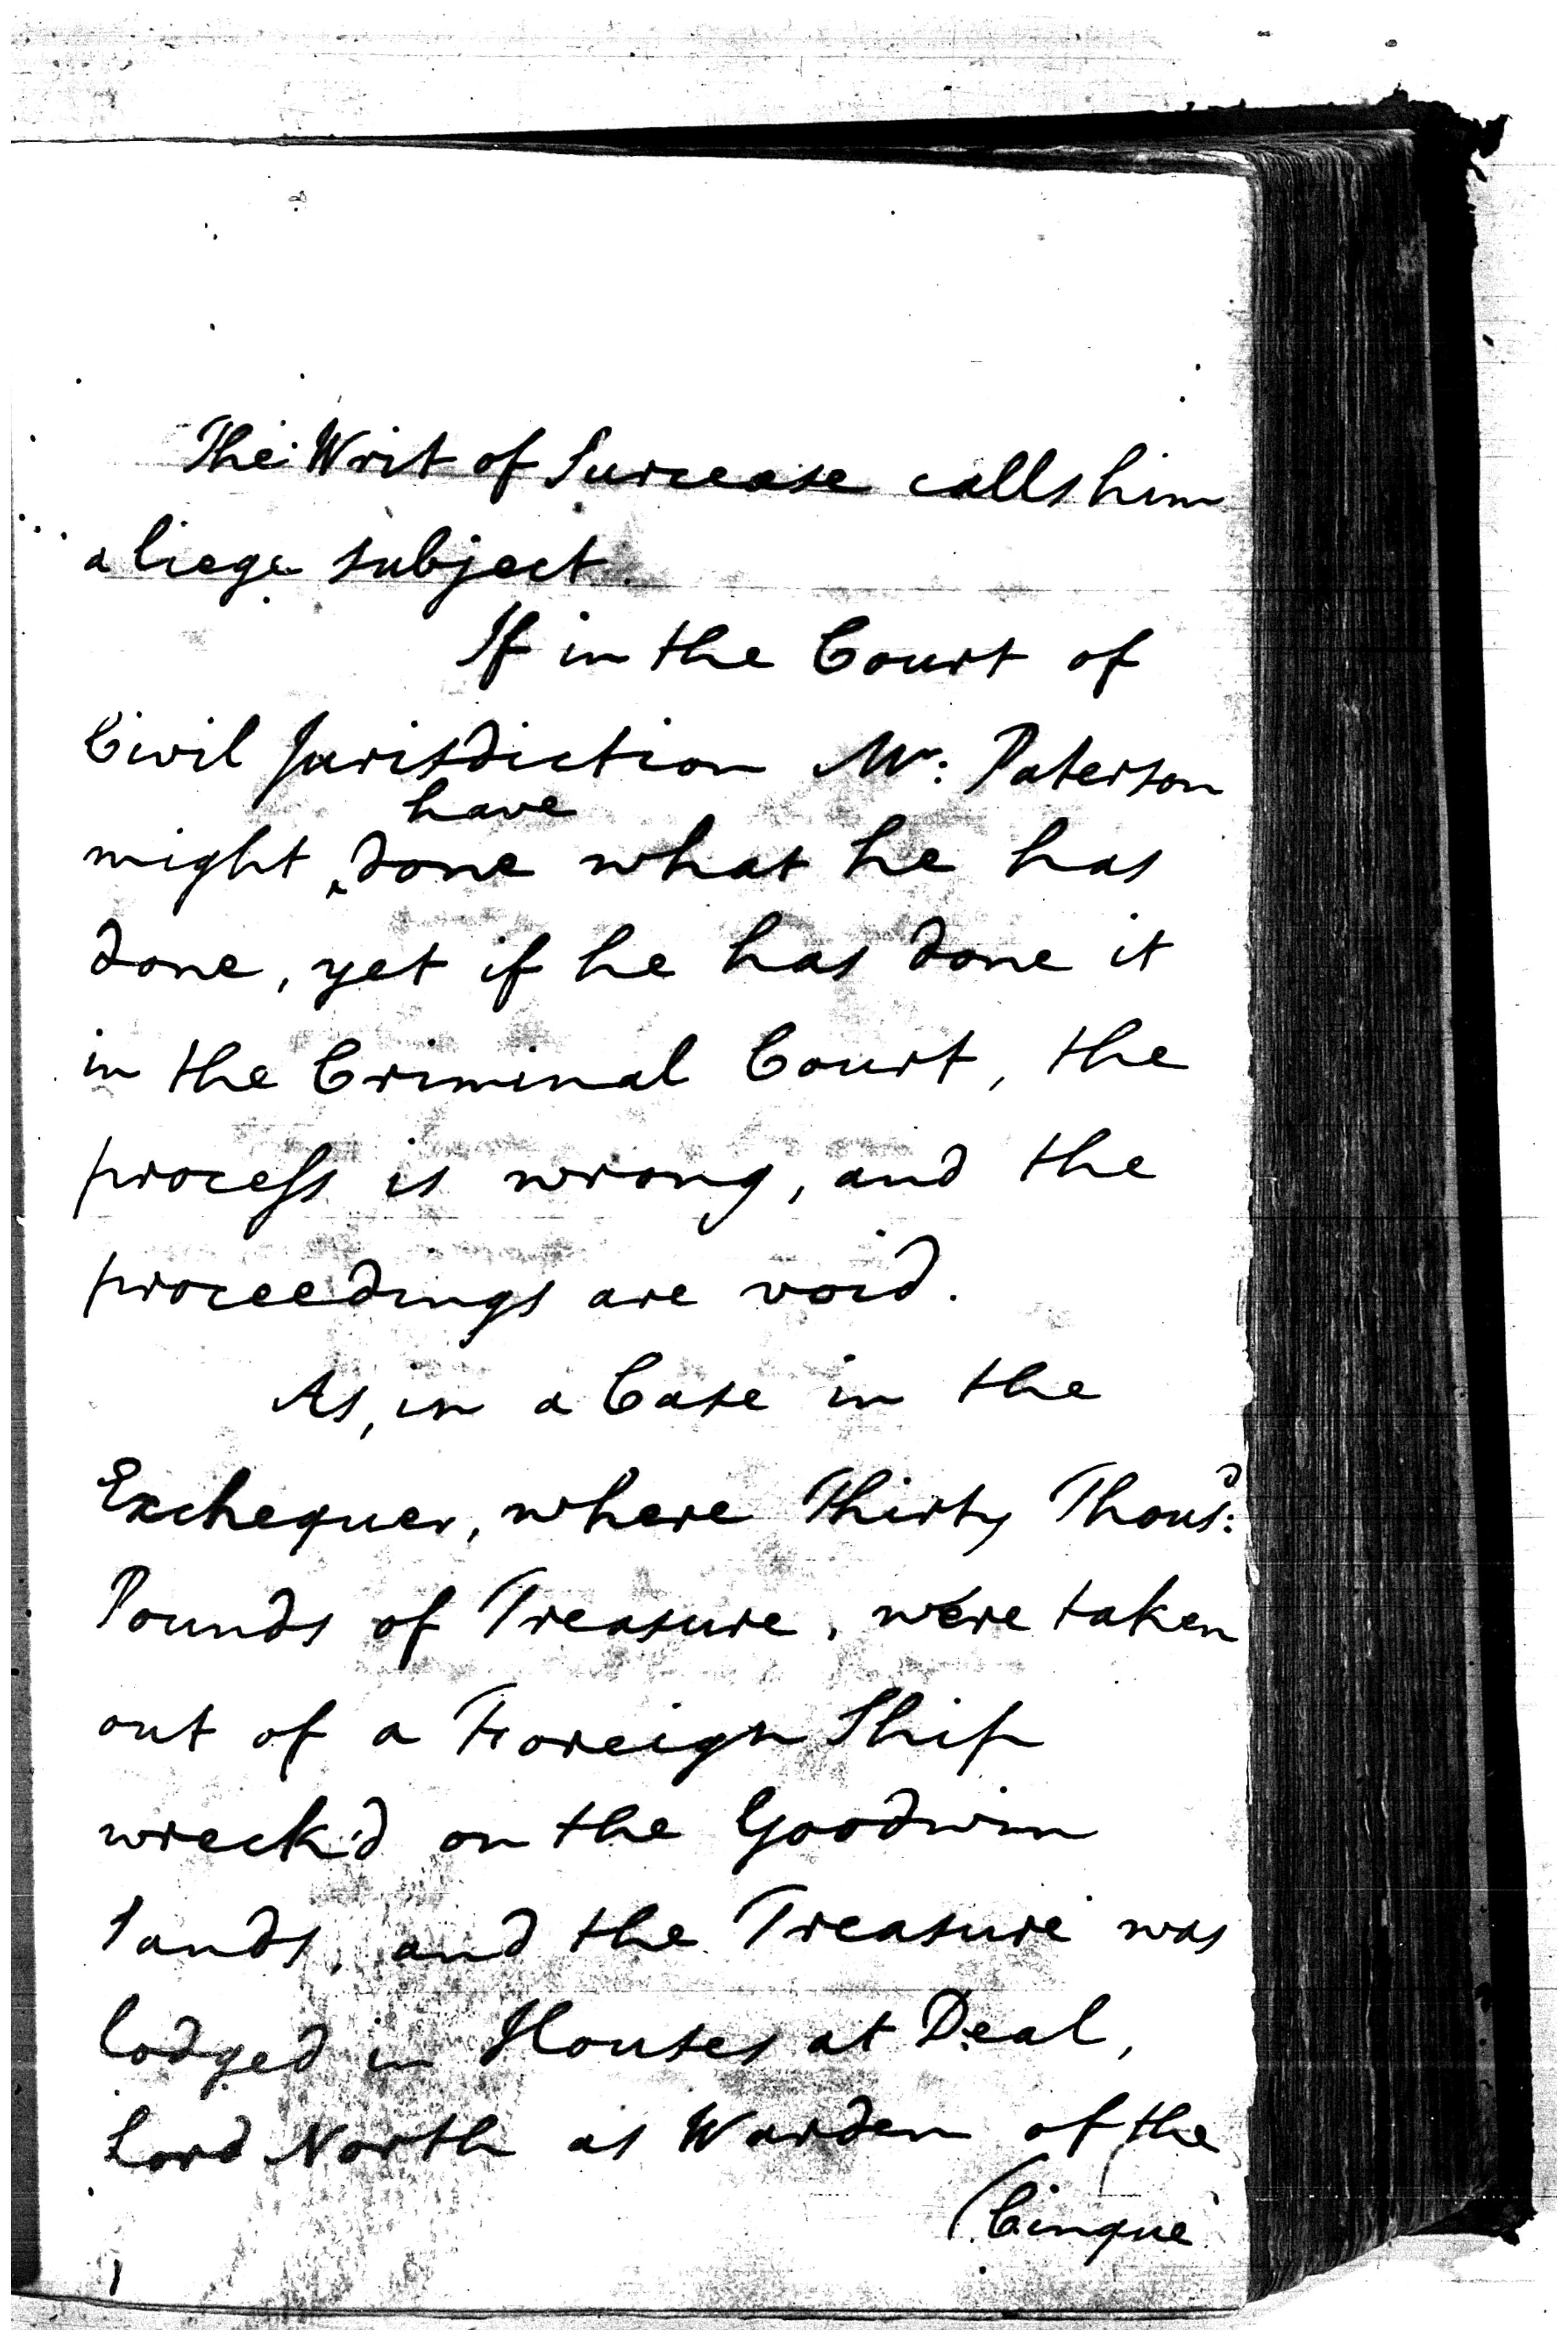 The Writ of Surcease calls him
a liege subject.
If in the Court of
Civil Jurisdiction Mr: Paterson
have
might ‸ done what he has
done, yet if he has done it
in the Criminal Court, the
process is wrong, and the
proceedings are void.
As, in a Case in the
Exchequer, where Thirty Thousd:
Pounds of Treasure, were taken
out of a Foreign Ship
wreck'd on the Goodwin
Sands, and the Treasure was
lodged in Houses at Deal,
Lord North as Warden of the
Cinque